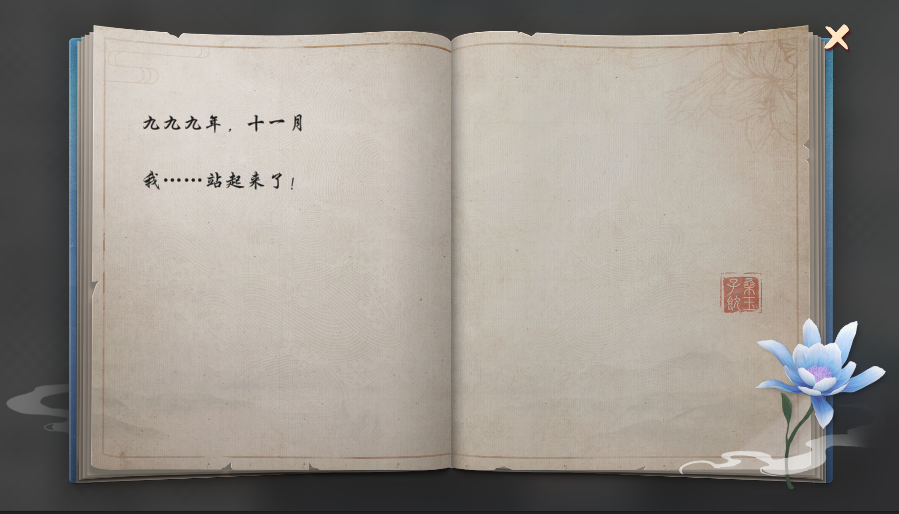 九九九年，十一月
我……站起来了！
桑玉
子飲